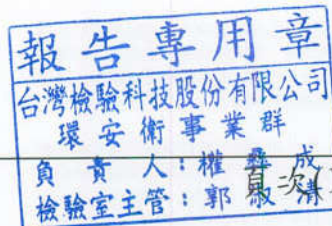 報告專用章
台灣檢驗科技股份有限公司
環安衛事業群
負責人：權彝成
檢驗室主管：郭淑清
頁次(